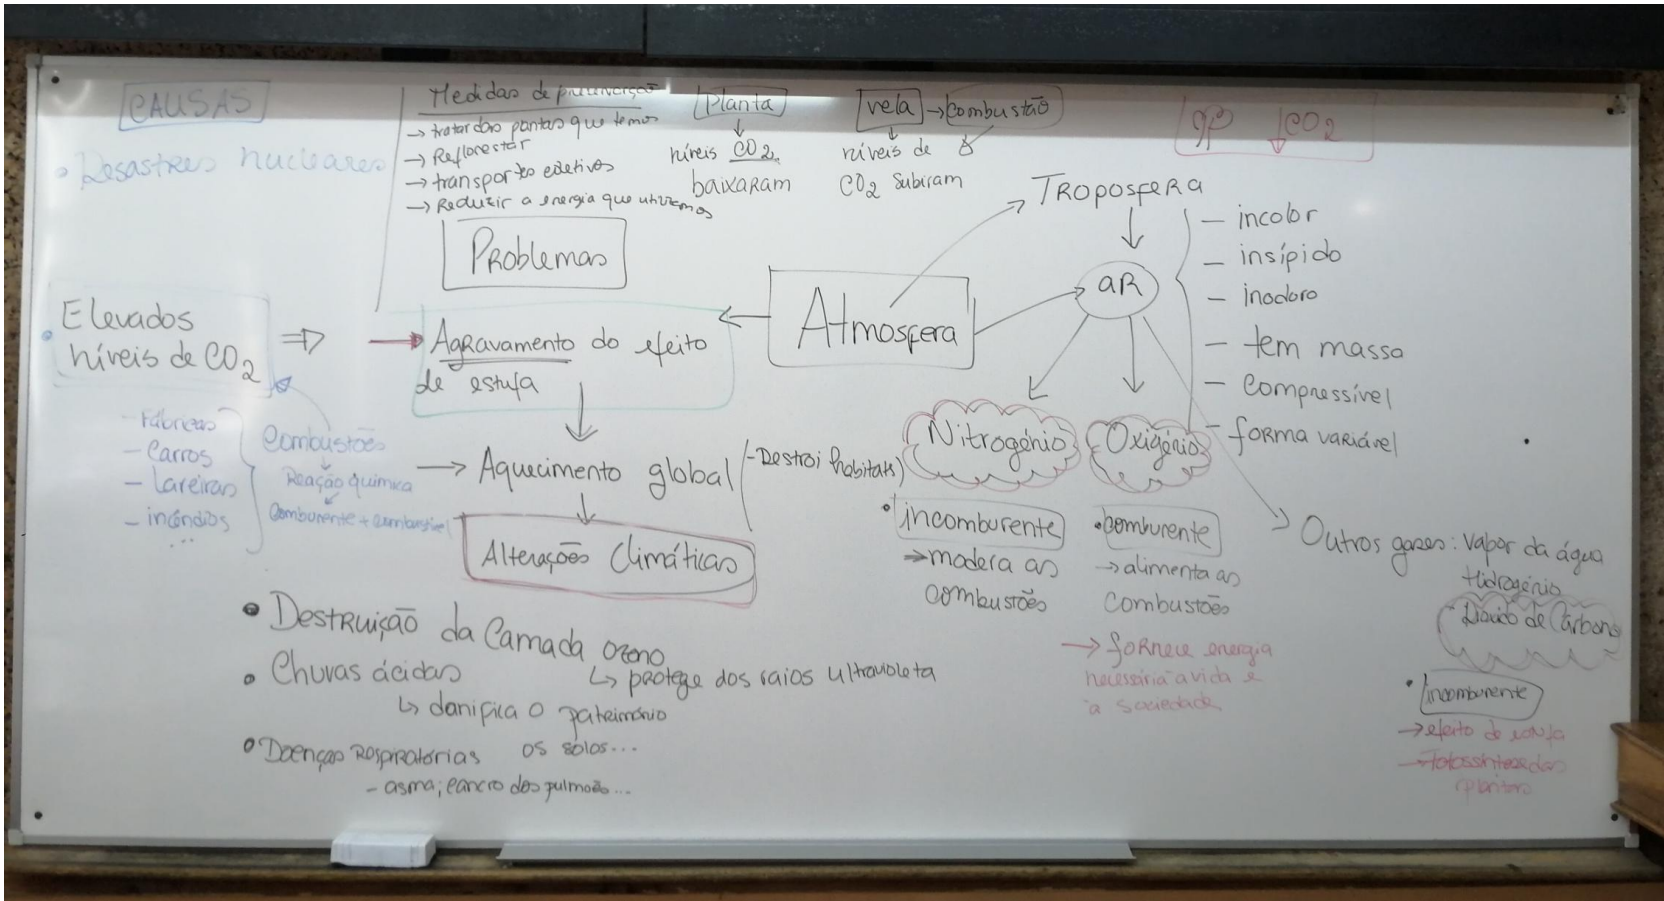 CAUSAS
• Desastres nucleares
Elevados
níveis de CO2
- Fábricas
- Carros
- Lareiras
- incêndios
...
Combustões
Reação química
Comburente + combustível
Medidas de
→ tratar das pantas que temos
→ Reflorestar
→ transportes coletivos
→ Reduzir a energia que utilizamos
Problemas
Agravamento do efeito
de estufa
Aquecimento global
- Destroi habitats
Alterações Climáticas
• Destruição da Camada ozono
↳ protege dos raios ultravioleta
• Chuvas ácidas
↳ danifica o património
os solos...
• Doenças Respiratórias
- asma; cancro dos pulmões...
Planta
níveis CO2
baixaram
vela → combustão
níveis de
CO2 subiram
↓CO2
Atmosfera
TROPOSFERA
aR
- incolor
- insípido
- inodoro
- tem massa
- compressível
- forma variável
Nitrogénio
• incomburente
→ modera as
combustões
Oxigénio
• comburente
→ alimenta as
combustões
→ fornece energia
necessária a vida e
a sociedade
Outros gases: vapor da água
Hidrogénio
Dióxido de Carbono
• incomburente
→ efeito de estufa
→ fotossíntese das
plantas